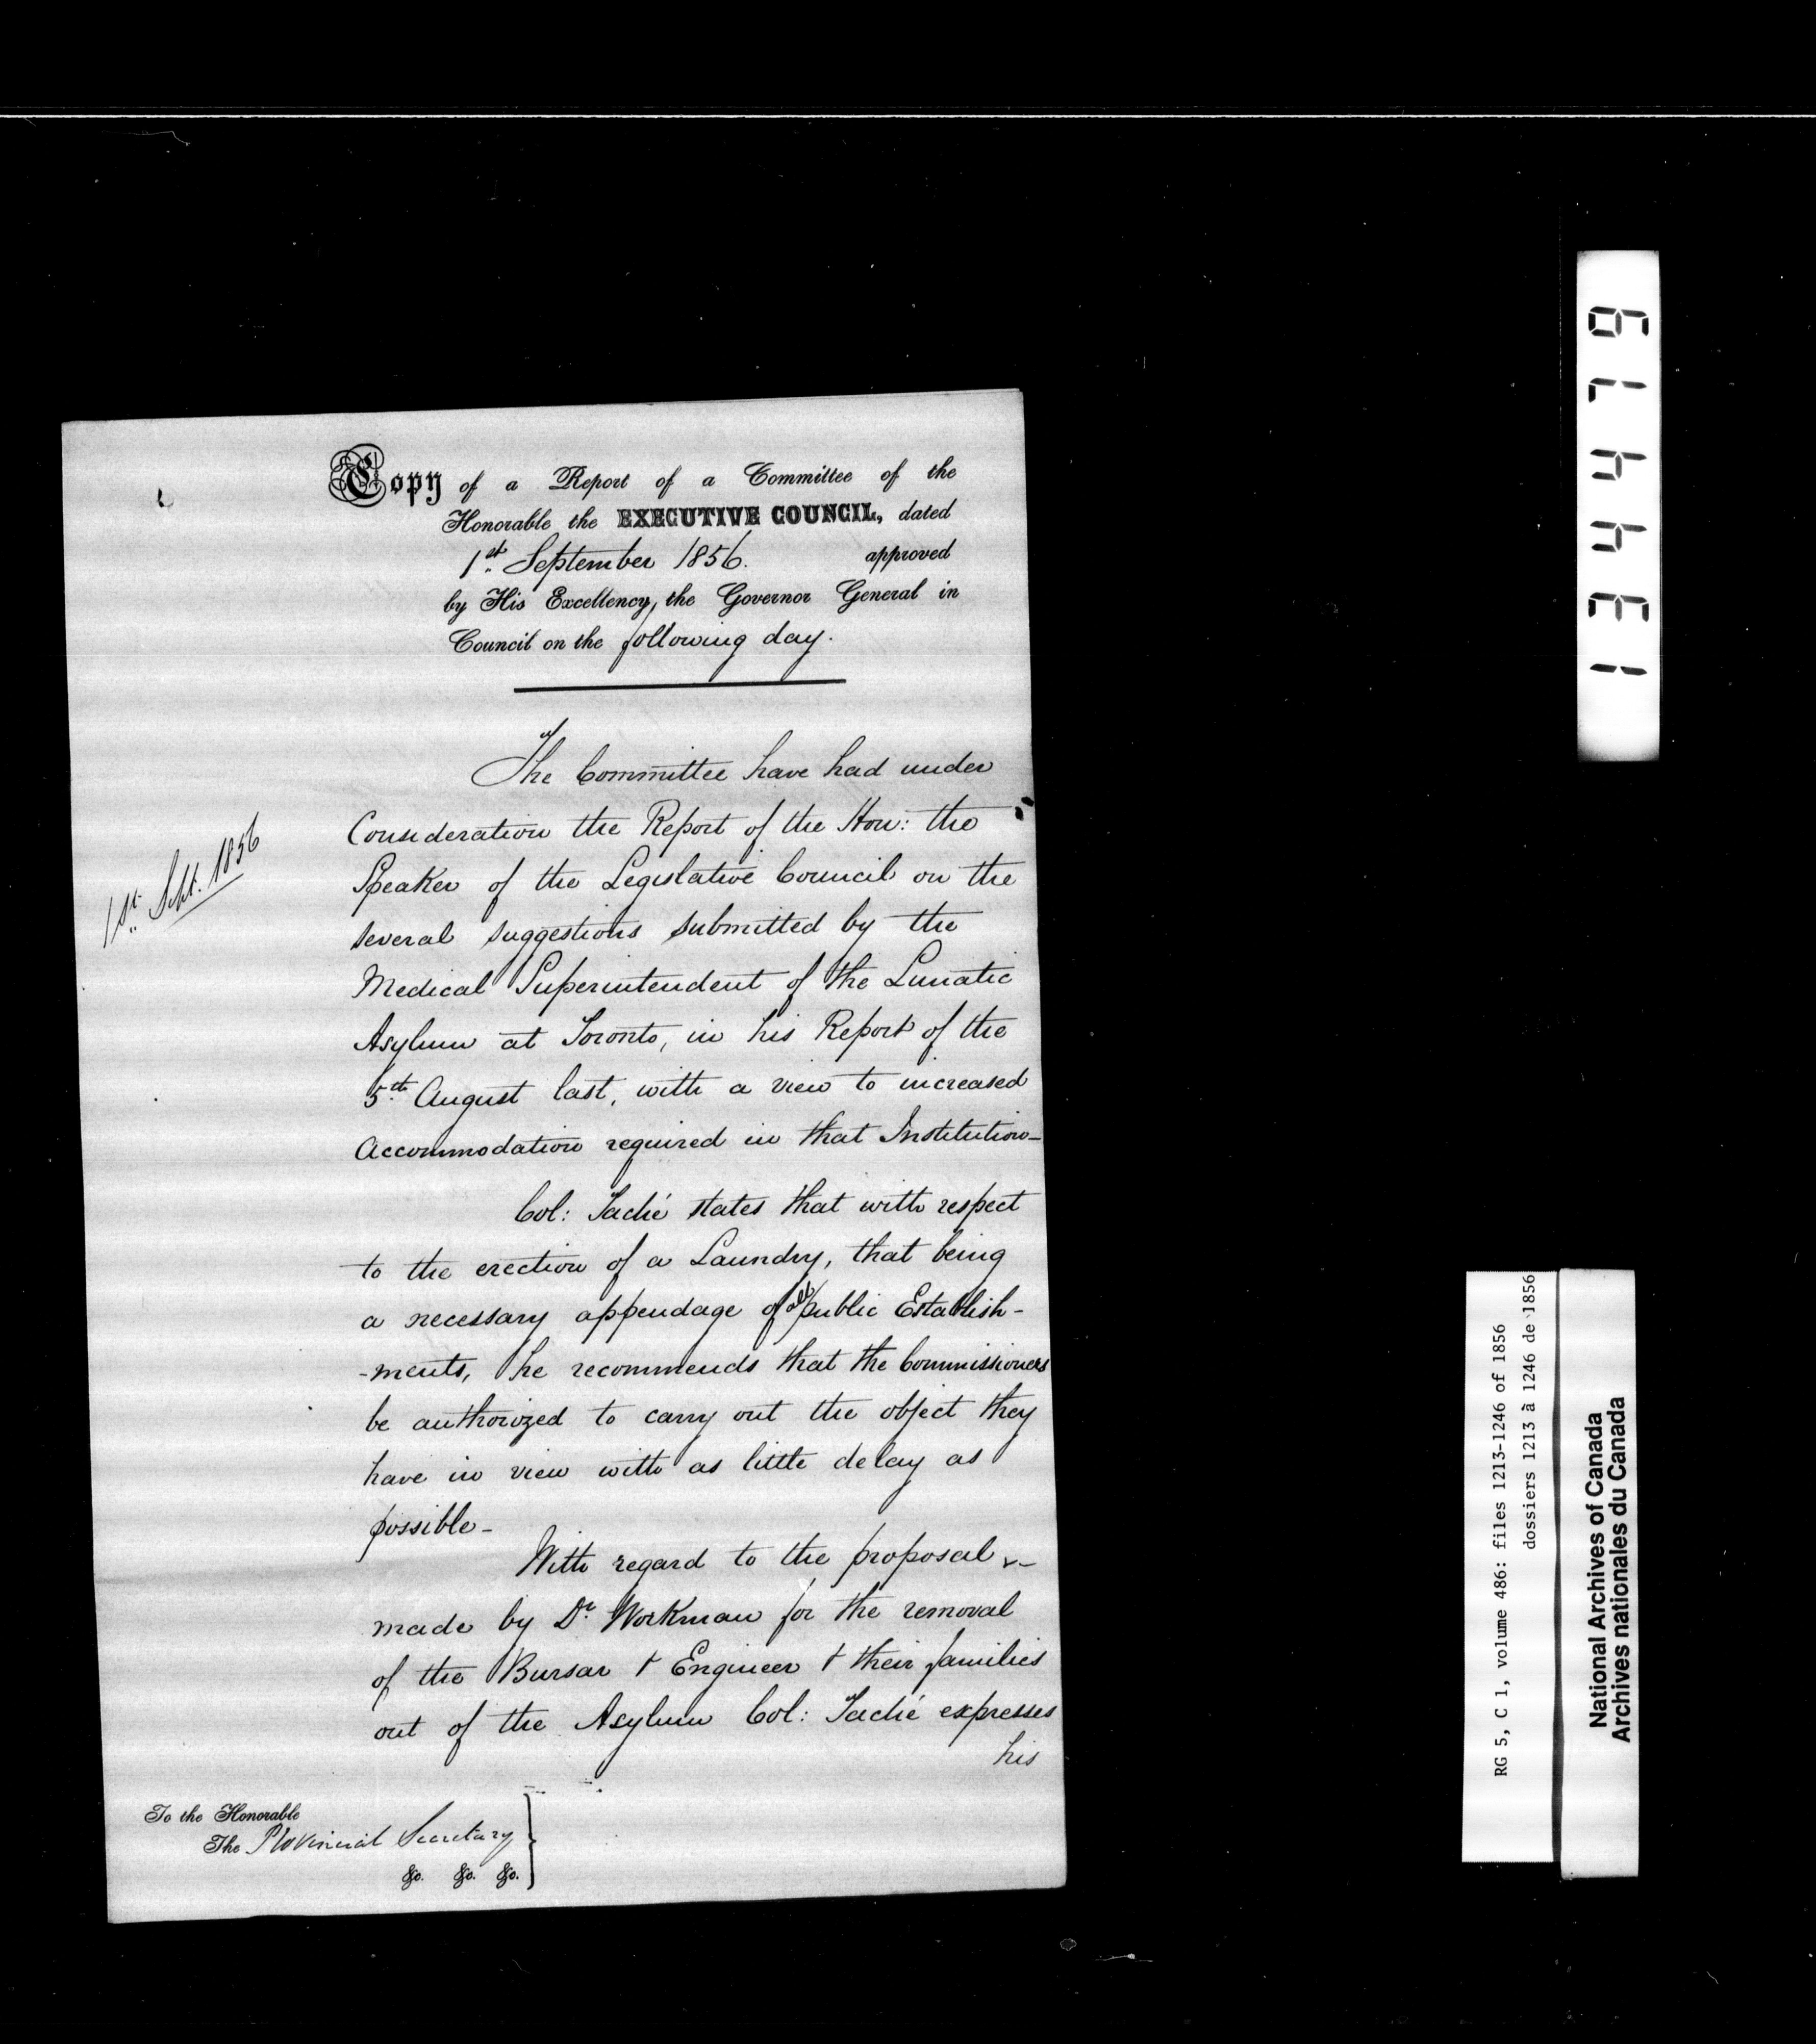 Copy of a Report of a Committee of the
Honorable the EXECUTIVE COUNCIL, dated
1st September 1856. approved
by His Excellency, the Governor General in
Council on the following day.
1st Sept. 1856
The Committee have had under
Consideration the Report of the Hon: the
Speaker of the Legislative Council on the
several suggestions submitted by the
Medical Superintendent of the Lunatic
Asylum at Toronto, in his Report of the
5th August last, with a view to increased
Accommodation required in that Institution—
Col: Taché states that with respect
to the erection of a Laundry, that being
a necessary appendage of all public Establish-
-ments, he recommends that the Commissioners
be authorized to carry out the object they
have in view with as little delay as
possible—
With regard to the proposal
made by Dr. Workman for the removal
of the Bursar & Engineer & their families
out of the Asylum Col: Taché expresses
his
To the Honorable
The Provincial Secretary
&c. &c. &c.
134479
RG 5, C 1, volume 486: files 1213-1246 of 1856
dossiers 1213 à 1246 de 1856
National Archives of Canada
Archives nationales du Canada